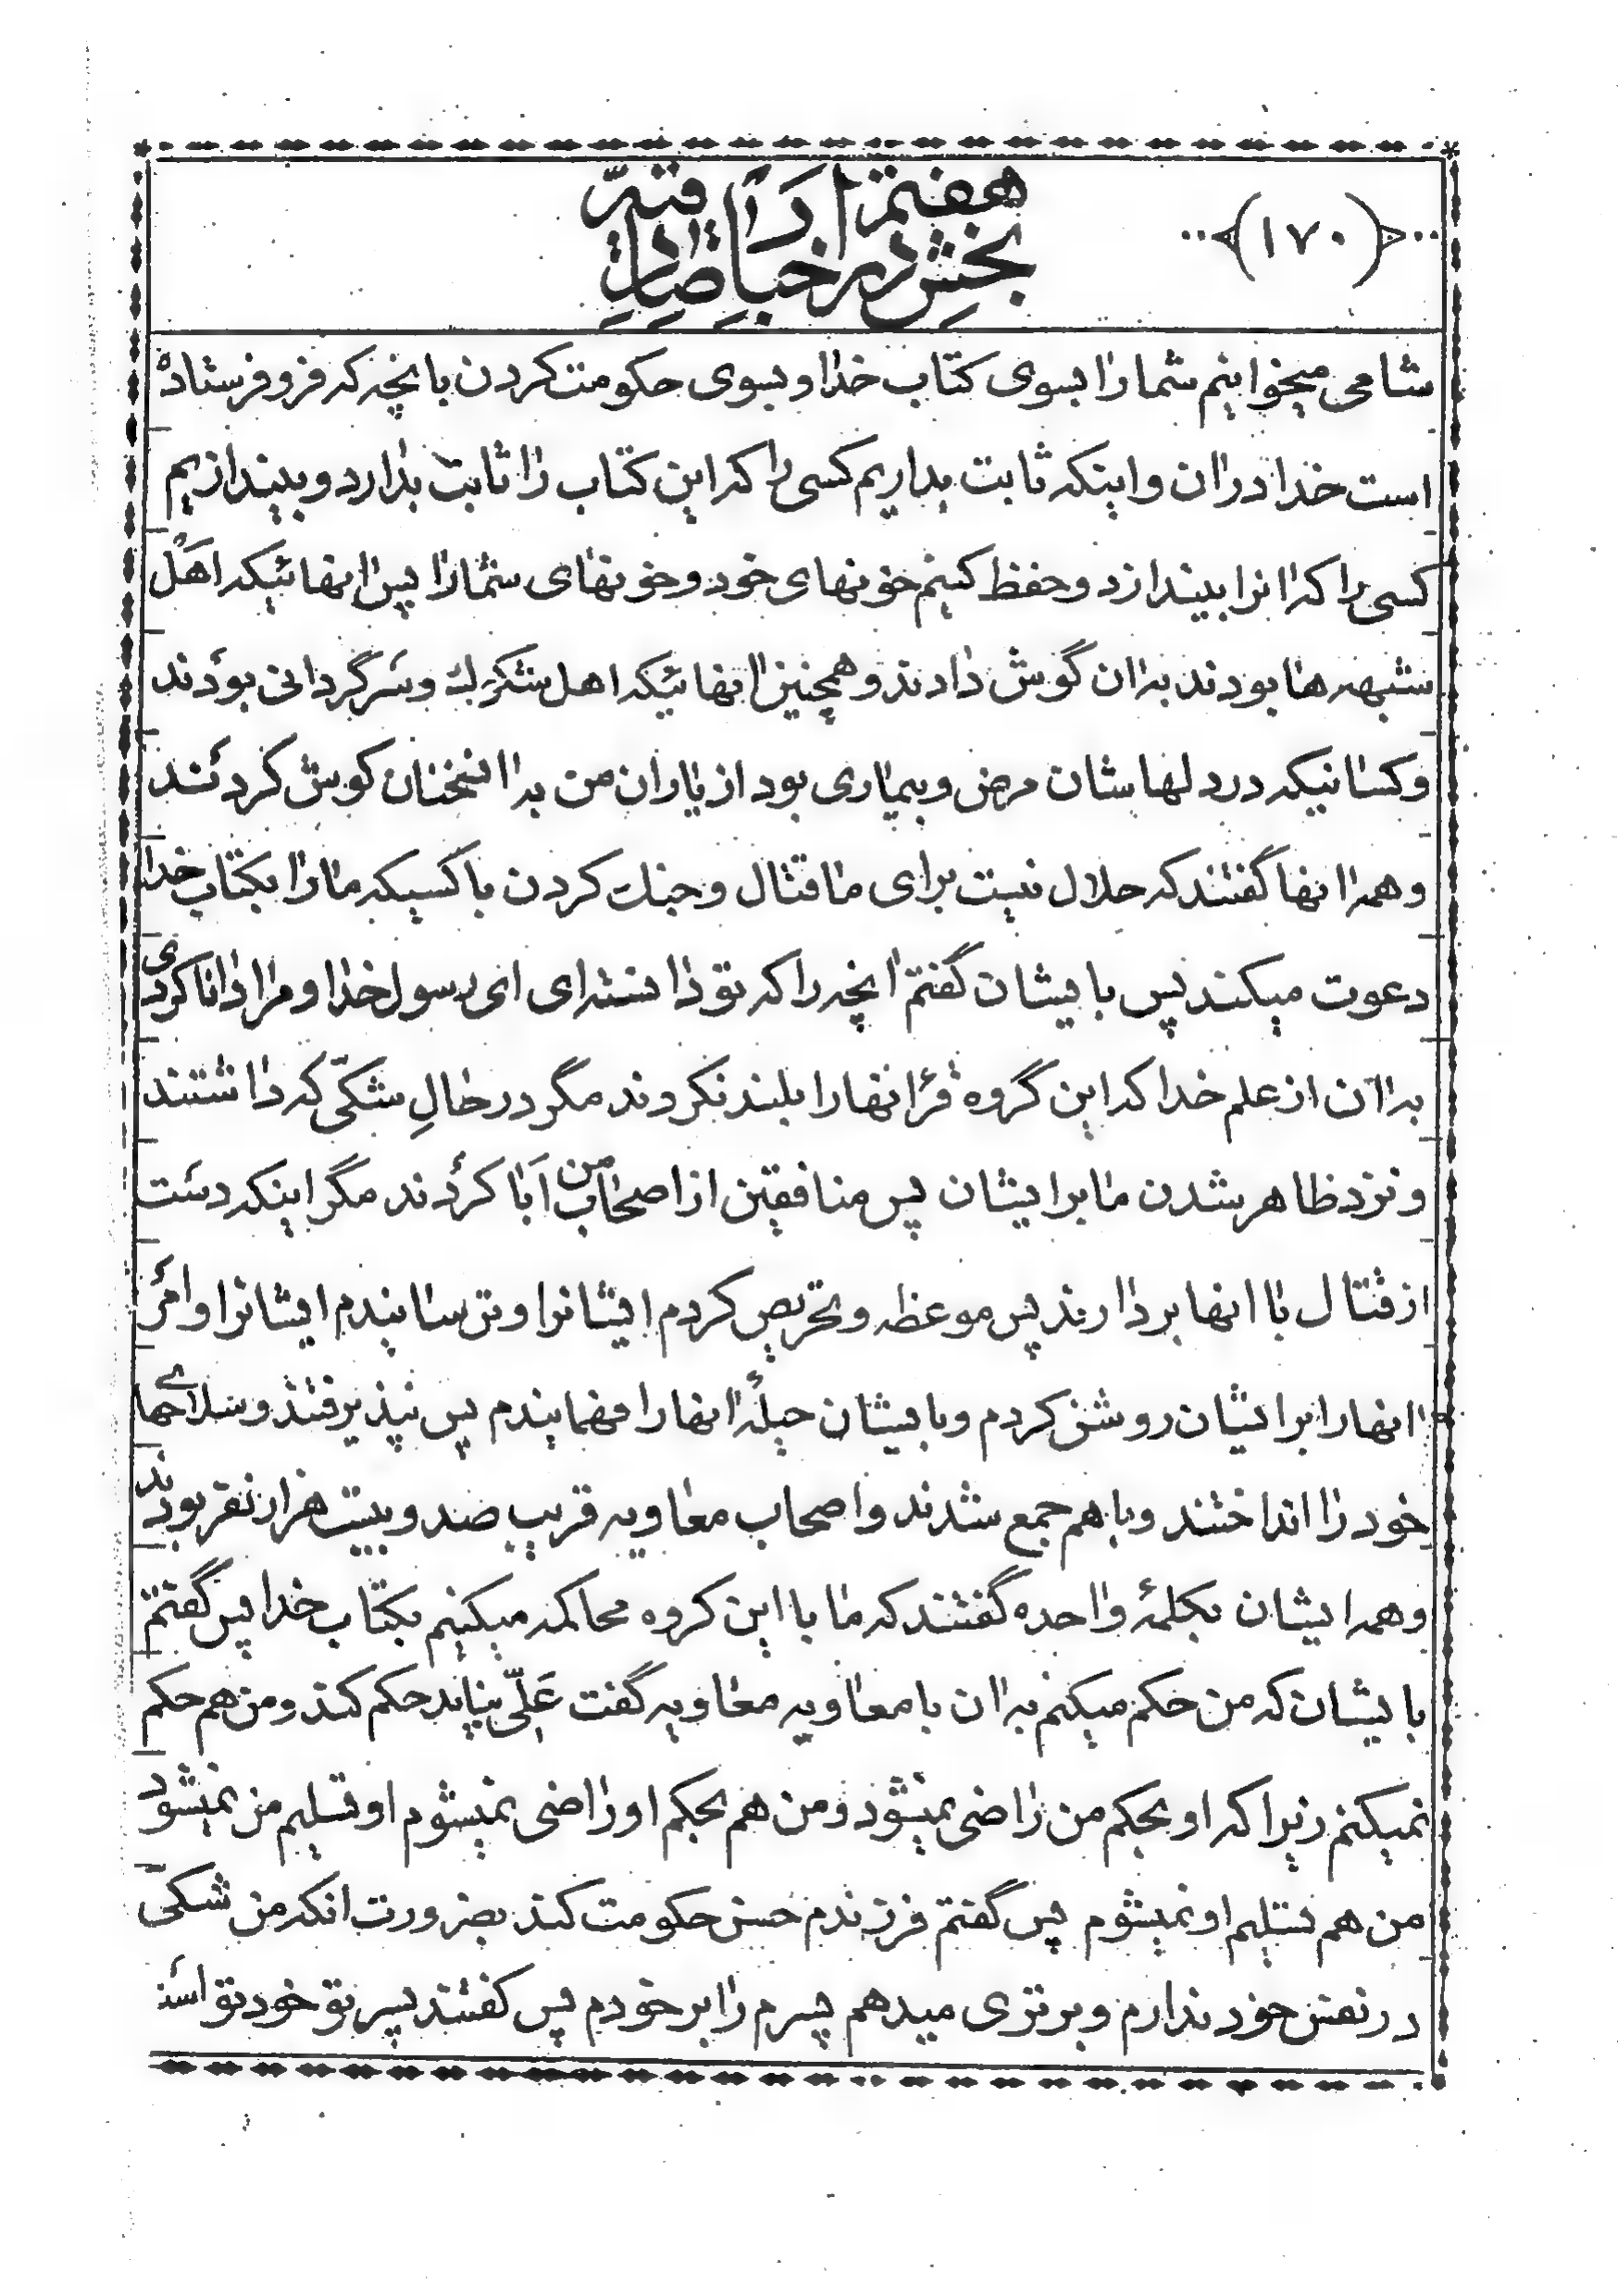 (۱۷۰)
بخش هفتم در اخبار صادره
شامی میخوانیم شما را بسوی کتاب خدا و بسوی حکومت کردن بانچه که فرو فرستاده
است خدا در ان و اینکه ثابت بداریم کسی را که این کتاب را ثابت بدارد و بیندازیم
کسی را که انرا بیندازد و حفظ کنیم خونهای خود و خونهای شما را پس انهائیکه اهل
شبهه ها بودند به ان گوش دادند و همچنین انهائیکه اهل شک و سرگردانی بودند
و کسانیکه در دلهاشان مرض و بیماری بود از یاران من به ان سخنان کوش کردند
و همه انها گفتند که حلال نیست برای ما قتال و جنك کردن با کسیکه ما را بکتاب خدا
دعوت میکند پس بایشان گفتم انچه را که تو دانسته ای ای رسول خدا و مرا دانا کردی
به ان از علم خدا که این گروه قرانها را بلند نکردند مگر در حالِ شکّی که داشتند
و نزد ظاهر شدن ما بر ایشان پس منافقین از اصحاب من اَبا کردند مگر اینکه دست
از قتال با انها بردارند پس موعظه و تحریص کردم ایشانرا و ترسانیدم ایشانرا و امر
انها را بر ایشان روشن کردم و بایشان حیلۀ انها را فهمانیدم پس نپذیرفتند و سلاحهای
خود را انداختند و با هم جمع شدند و اصحاب معاویه قریب صد و بیست هزار نفر بودند
و همه ایشان بکلمۀ واحده گفتند که ما با این کروه محاکمه میکنیم بکتاب خدا پس گفتم
بایشان که من حکم میکنم به ان با معاویه معاویه گفت علیّ نباید حکم کند و من هم حکم
نمیکنم زیرا که او بحکم من راضی نمیشود و من هم بحکم او راضی نمیشوم او تسلیم من نمیشود
من هم تسلیم او نمیشوم پس گفتم فرزندم حسن حکومت کند بضرورت انکه من شکی
در نفس خود ندارم و برتری میدهم پسرم را بر خودم پس کفتند پسر تو خود تو است